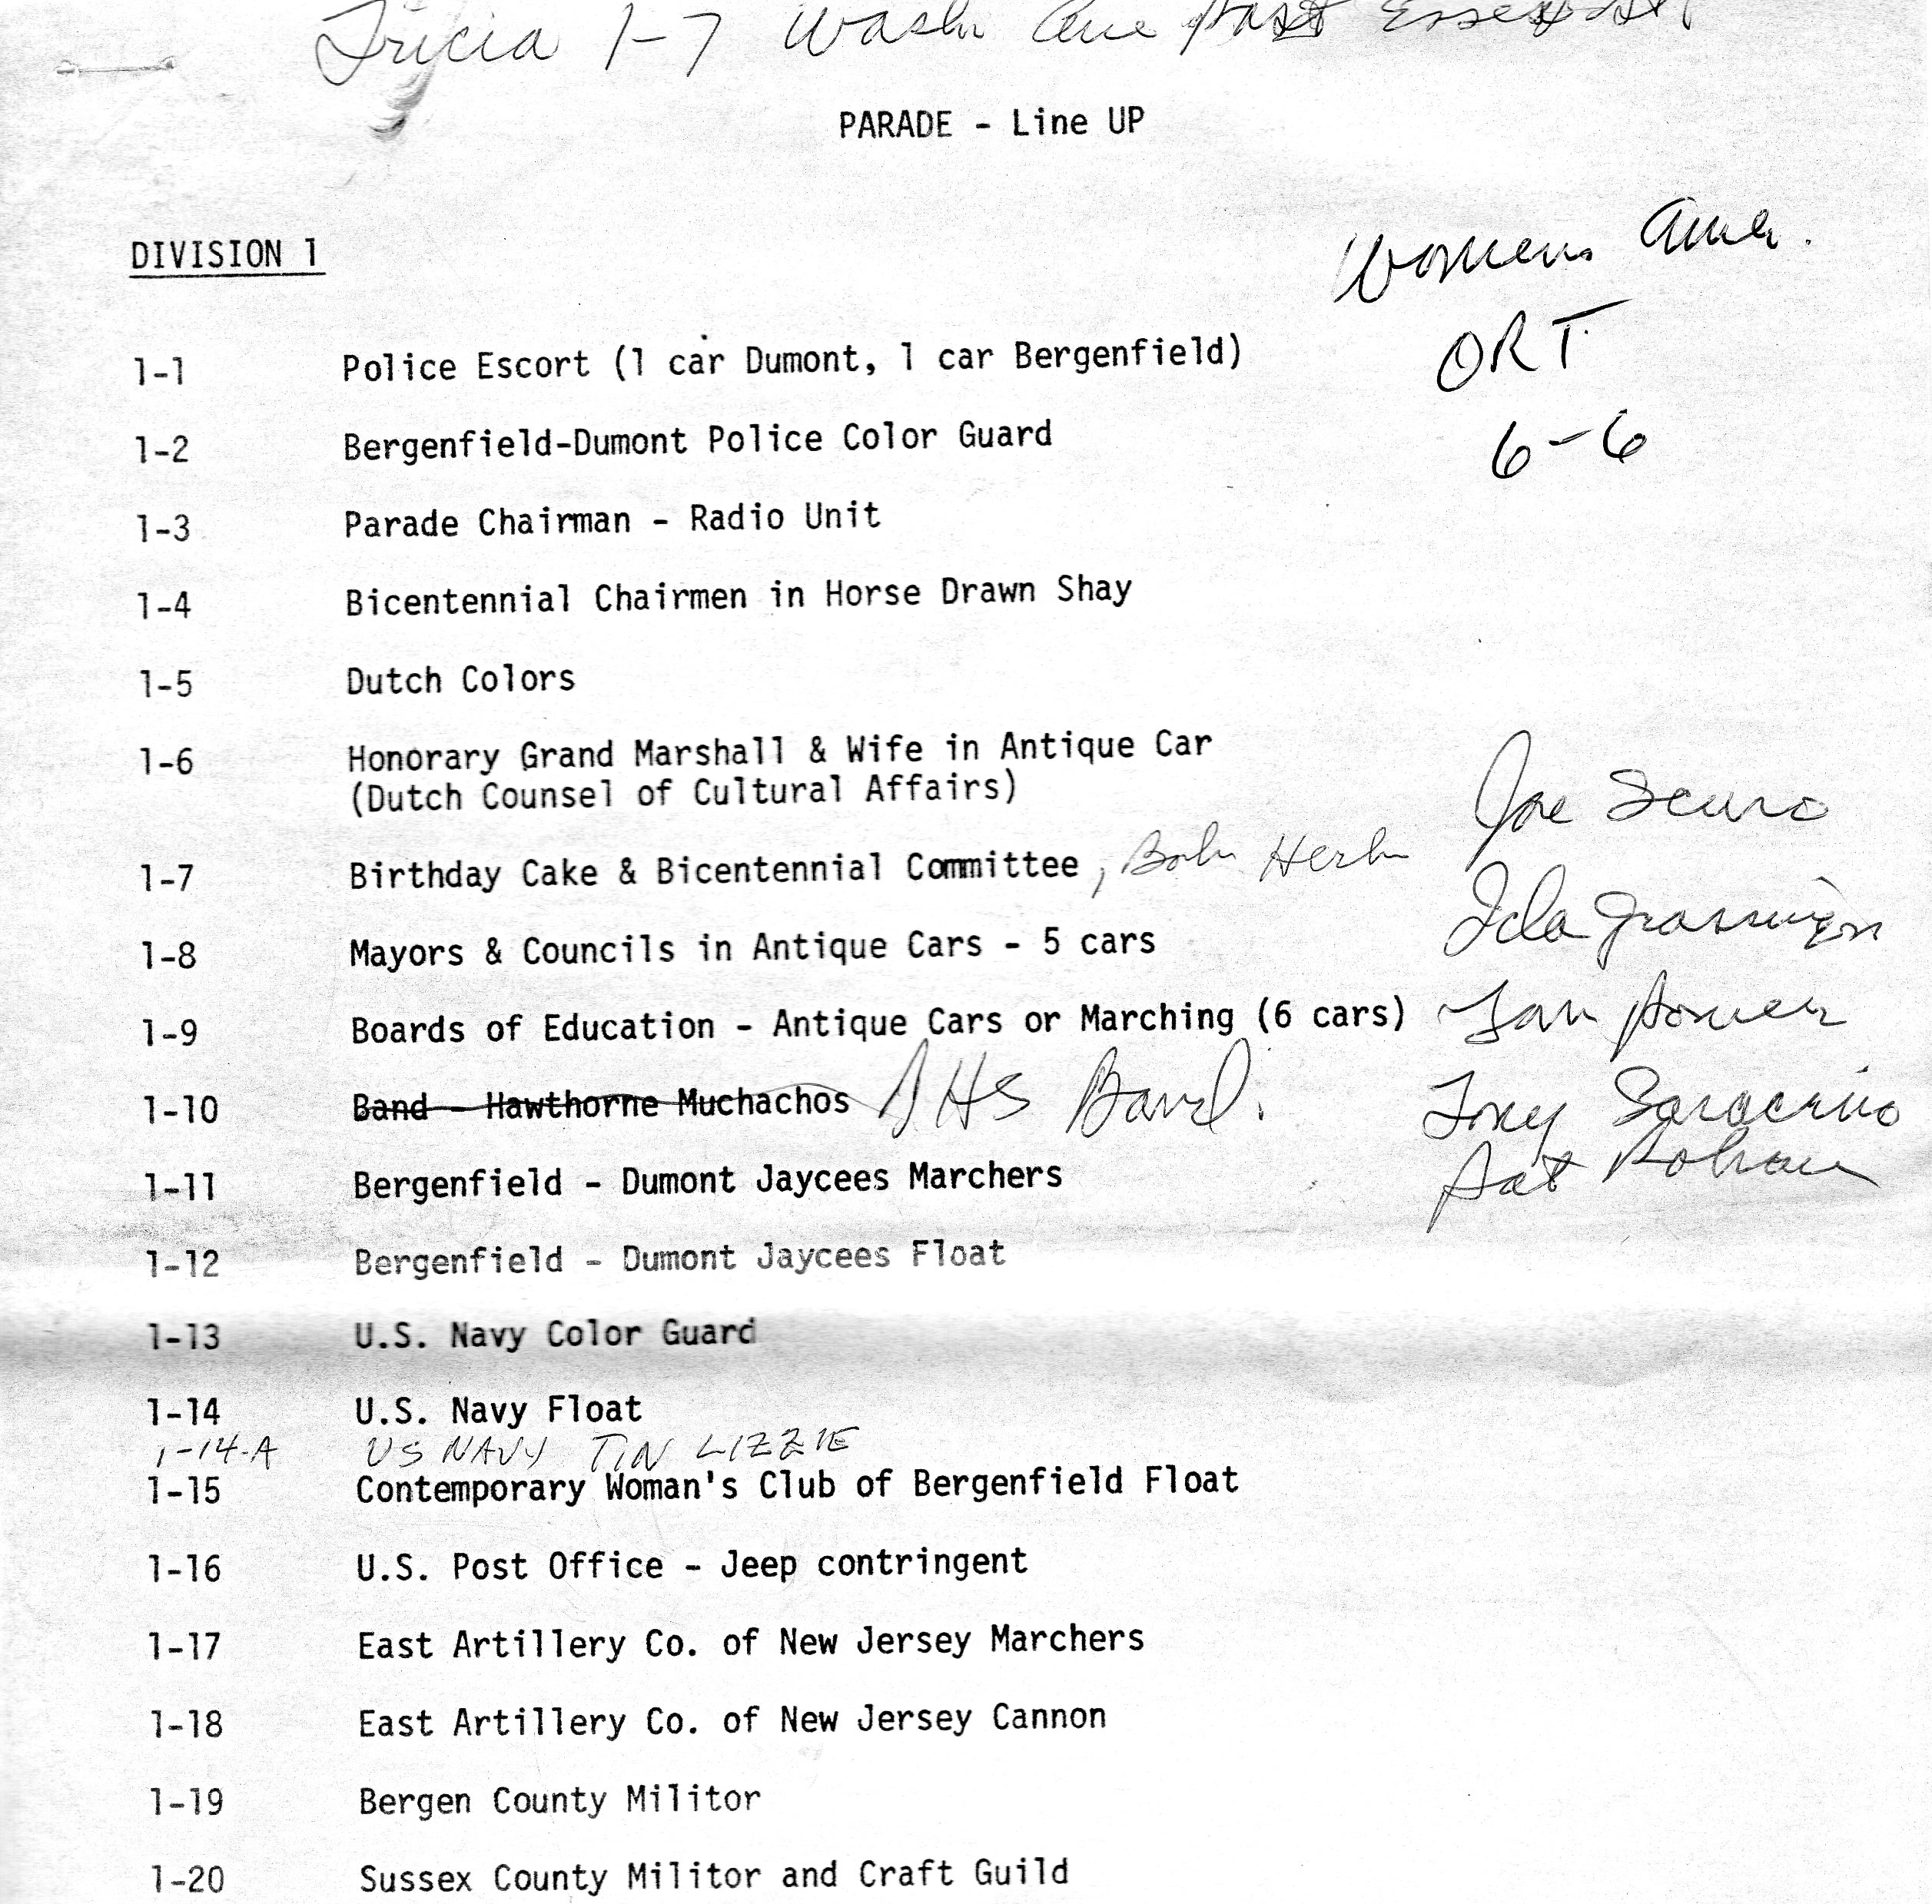 Tricia 1-7 Wash Ave past Essex St.
PARADE - Line UP
DIVISION 1
Womens Amer.
ORT
6-6
1-1 Police Escort (1 car Dumont, 1 car Bergenfield)
1-2 Bergenfield-Dumont Police Color Guard
1-3 Parade Chairman - Radio Unit
1-4 Bicentennial Chairmen in Horse Drawn Shay
1-5 Dutch Colors
1-6 Honorary Grand Marshall & Wife in Antique Car
(Dutch Counsel of Cultural Affairs)
Joe Scuro
1-7 Birthday Cake & Bicentennial Committee, Herb
Ida
1-8 Mayors & Councils in Antique Cars - 5 cars
1-9 Boards of Education - Antique Cars or Marching (6 cars)
1-10 Band - Hawthorne Muchachos HS Band
Tony Saracino
Pat
1-11 Bergenfield - Dumont Jaycees Marchers
1-12 Bergenfield - Dumont Jaycees Float
1-13 U.S. Navy Color Guard
1-14 U.S. Navy Float
1-14-A US NAVY TIN LIZZIE
1-15 Contemporary Woman's Club of Bergenfield Float
1-16 U.S. Post Office - Jeep contringent
1-17 East Artillery Co. of New Jersey Marchers
1-18 East Artillery Co. of New Jersey Cannon
1-19 Bergen County Militor
1-20 Sussex County Militor and Craft Guild